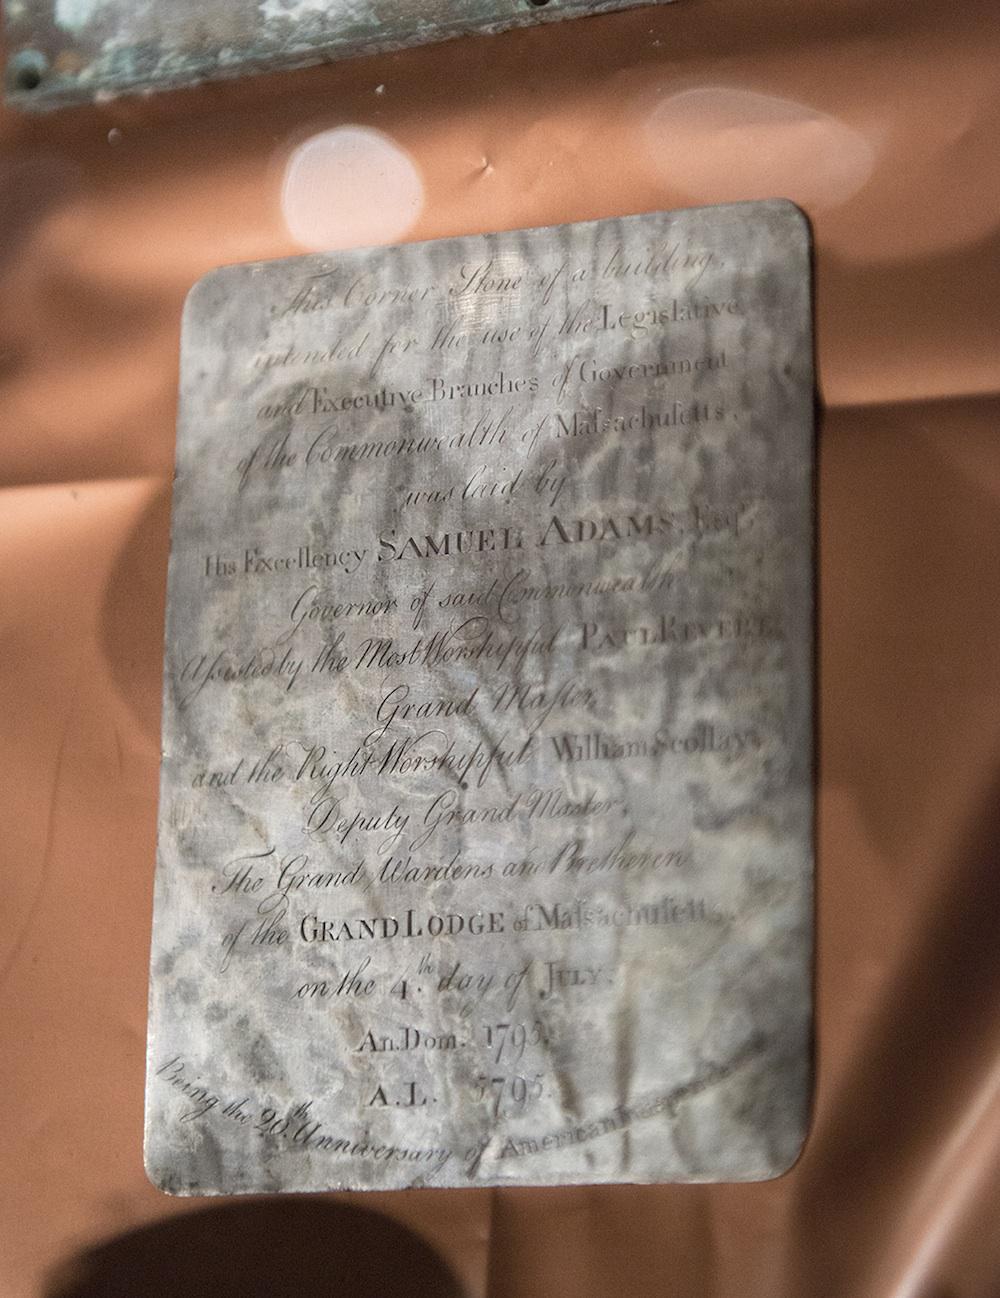 This Corner Stone of a building,
intended for the use of the Legislative
and Executive Branches of Government
of the Commonwealth of Maſsachuſetts,
was laid by
His Excellency SAMUEL ADAMS, Esqr.
Governor of said Commonwealth
Aſsisted by the Most Worshipful PAUL REVERE
Grand Maſter,
and the Right Worshipful William Scollay,
Deputy Grand Master,
The Grand Wardens and Bretheren
of the GRAND LODGE of Maſsachuſetts,
on the 4th. day of JULY.
An. Dom. 1795.
A.L. 5795.
Being the 20th. Anniversary of American Independence